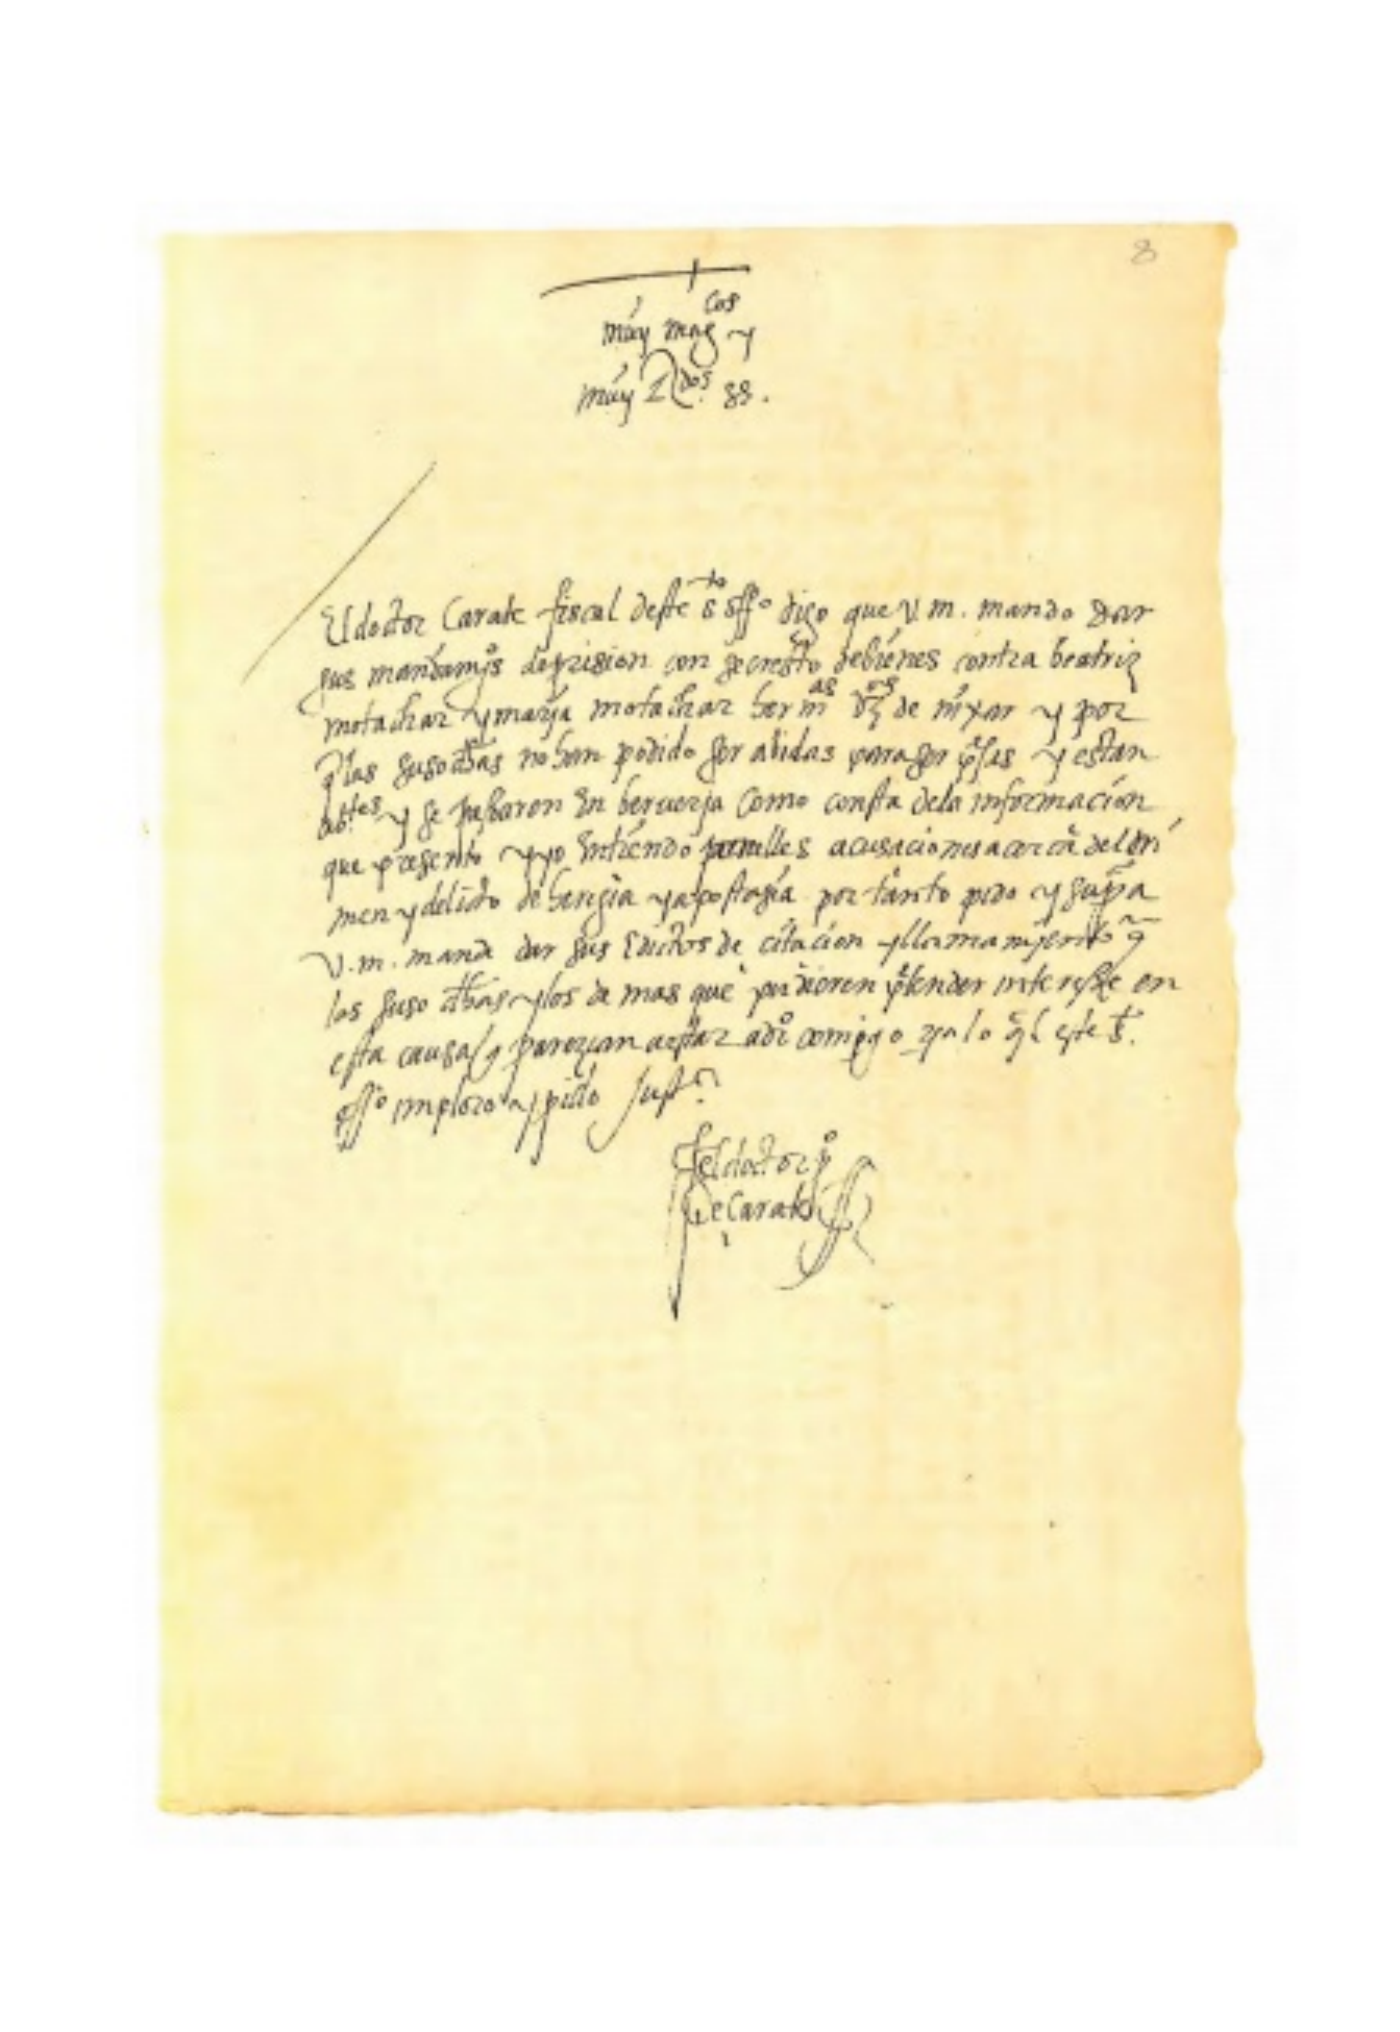 8
muy mag.cos y
muy R.dos ss.
El doctor Carate fiscal deste s.to off.o digo que v.m. mando dar
sus mandamj.os de prision con secresto de bienes contra beatriz
motachar y marja motachar herm.as v.os de mixar y por
q las suso dhas no han podido ser abidas para ser presas y estan
ab.tes y se pasaron en berverja como consta dela informacion
que presento y yo entiendo acusaciones acerca del cri
men y delicto de heregia y apostasia por tanto pido y sup.co a
v.m. mande dar sus edictos de citacion y llamamjento q
las suso dhas y los de mas que pudieren pretender interesse en
esta causa q parezcan a estar a dr.o comigo para lo ql este s.to
off.o imploro y pido just.a
el doctor p.o
de Carate